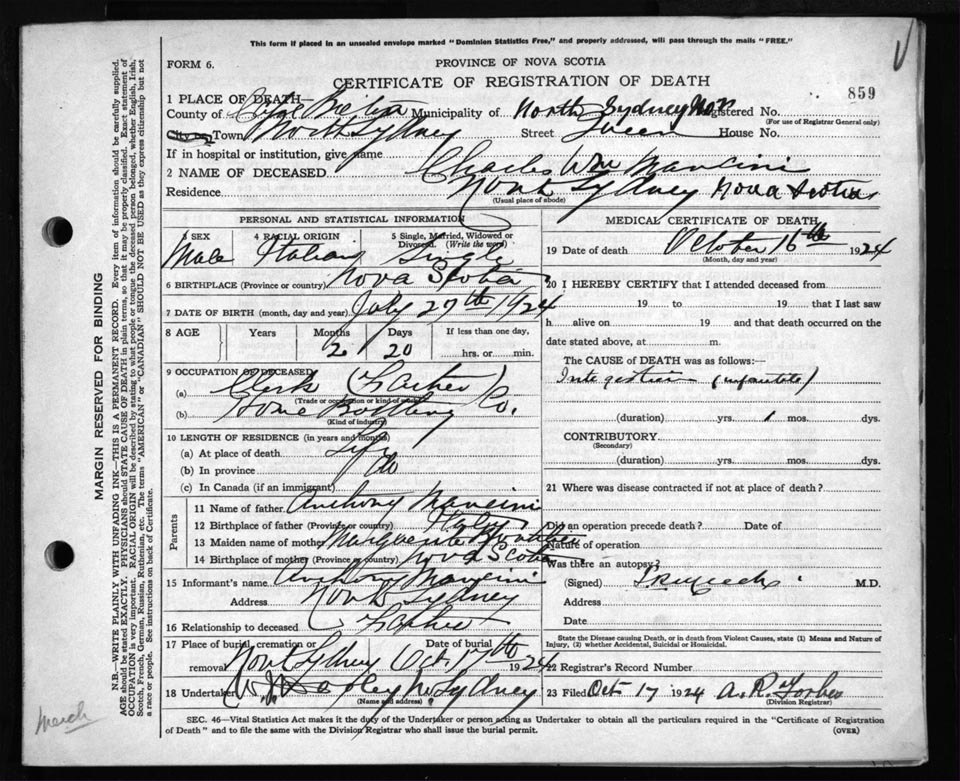 This form if placed in an unsealed envelope marked "Dominion Statistics Free," and properly addressed, will pass through the mails "FREE."
FORM 6.
PROVINCE OF NOVA SCOTIA
CERTIFICATE OF REGISTRATION OF DEATH
859
1 PLACE OF DEATH
County of Cape Breton Municipality of North Sydney Registered No.
(For use of Registrar General only)
City or Town North Sydney Street Queen House No.
If in hospital or institution, give name
2 NAME OF DECEASED Charles Wm Mancini
Residence North Sydney Nova Scotia
(Usual place of abode)
PERSONAL AND STATISTICAL INFORMATION
3 SEX 4 RACIAL ORIGIN 5 Single, Married, Widowed or Divorced. (Write the word)
Male Italian Single
6 BIRTHPLACE (Province or country) Nova Scotia
7 DATE OF BIRTH (month, day and year) July 27th 1924
8 AGE Years Months Days If less than one day,
2 20 hrs. or min.
9 OCCUPATION OF DECEASED
(a) Clerk (Father)
(Trade or occupation or kind of work)
(b) Bottling Co.
(Kind of industry)
10 LENGTH OF RESIDENCE (in years and months)
(a) At place of death Life
(b) In province do
(c) In Canada (if an immigrant)
Parents
11 Name of father Anthony Mancini
12 Birthplace of father (Province or country) Italy
13 Maiden name of mother Marguerite
14 Birthplace of mother (Province or country) Nova Scotia
15 Informant's name Anthony Mancini
Address North Sydney
16 Relationship to deceased Father
17 Place of burial, cremation or removal Date of burial
North Sydney Oct 17th 1924
18 Undertaker N. Sydney
(Name and address)
MEDICAL CERTIFICATE OF DEATH
19 Date of death October 16th 1924
(Month, day and year)
20 I HEREBY CERTIFY that I attended deceased from
19 to 19 that I last saw
h alive on 19 and that death occurred on the
date stated above, at m.
The CAUSE of DEATH was as follows:—
(infantile)
(duration) yrs. 1 mos. dys.
CONTRIBUTORY
(Secondary)
(duration) yrs. mos. dys.
21 Where was disease contracted if not at place of death?
Did an operation precede death? Date of
Nature of operation
Was there an autopsy?
(Signed) M.D.
Address
Date
State the Disease causing Death, or in death from Violent Causes, state (1) Means and Nature of Injury, (2) whether Accidental, Suicidal or Homicidal.
22 Registrar's Record Number
23 Filed Oct 17 1924 A. R. Forbes
(Division Registrar)
SEC. 46—Vital Statistics Act makes it the duty of the Undertaker or person acting as Undertaker to obtain all the particulars required in the "Certificate of Registration
of Death" and to file the same with the Division Registrar who shall issue the burial permit.
(OVER)
MARGIN RESERVED FOR BINDING
N.B.—WRITE PLAINLY WITH UNFADING INK—THIS IS A PERMANENT RECORD. Every item of information should be carefully supplied.
AGE should be stated EXACTLY. PHYSICIANS should STATE CAUSE OF DEATH in plain terms, so that it may be properly classified. Exact statement of
OCCUPATION is very important. RACIAL ORIGIN will be described by stating to what people or tongue the deceased person belonged, whether English, Irish,
Scotch, French, German, Russian, Ruthenian, etc. The terms "AMERICAN" or "CANADIAN" SHOULD NOT BE USED as they express citizenship but not
a race or people. See instructions on back of Certificate.